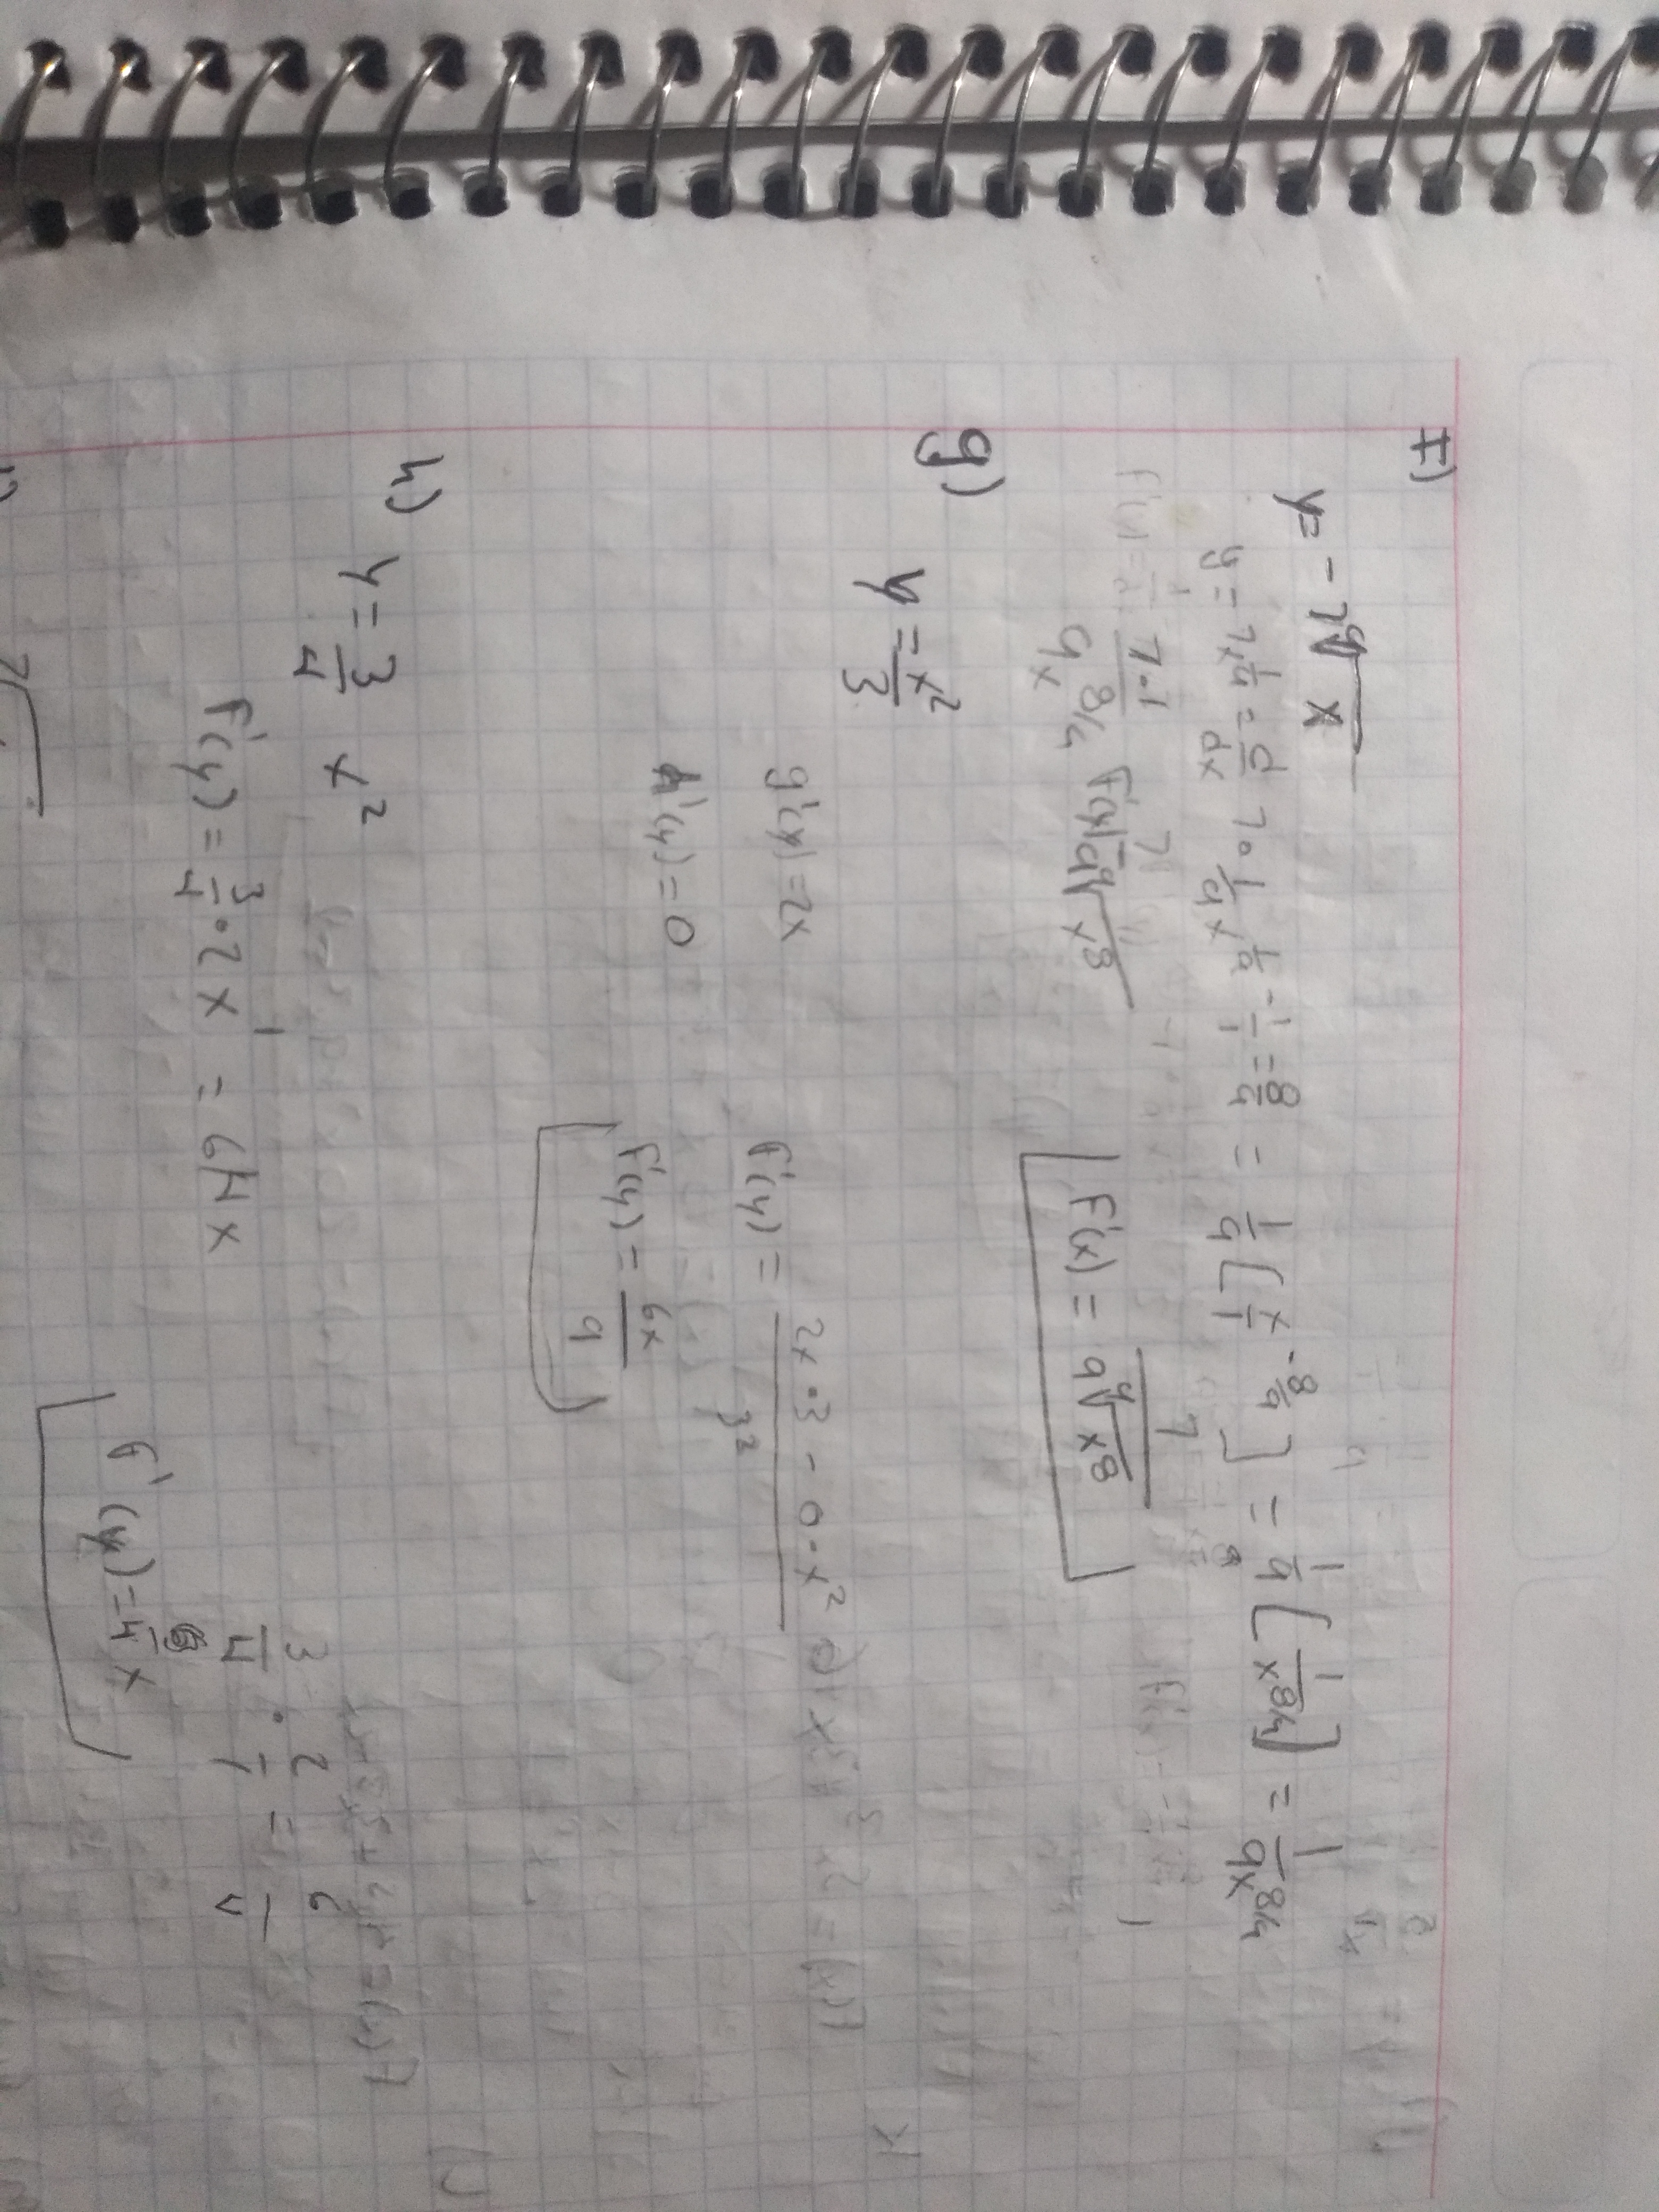 F)
y = -7 ⁹√x
y = 7x 1/9 = d/dx 7 · 1/9 x 1/9 - 1/1 = 8/9 = 1/9 [x/1 -8/9] = 1/9 [1/x 8/9] = 1/9x 8/9
7·1/9x 8/9 F'(y) = 7/9 ⁹√x⁸ F'(x) = 7/9 ⁹√x⁸
g)
y = x²/3
g'(y) = 2x F'(y) = 2x·3 - 0·x²/3²
h'(y) = 0 F'(y) = 6x/9
h)
y = 3/4 x²
F'(y) = 3/4 · 2x¹ = 6/4 x 3/4 · 2/1 = 6
F'(y) = 6/4 x